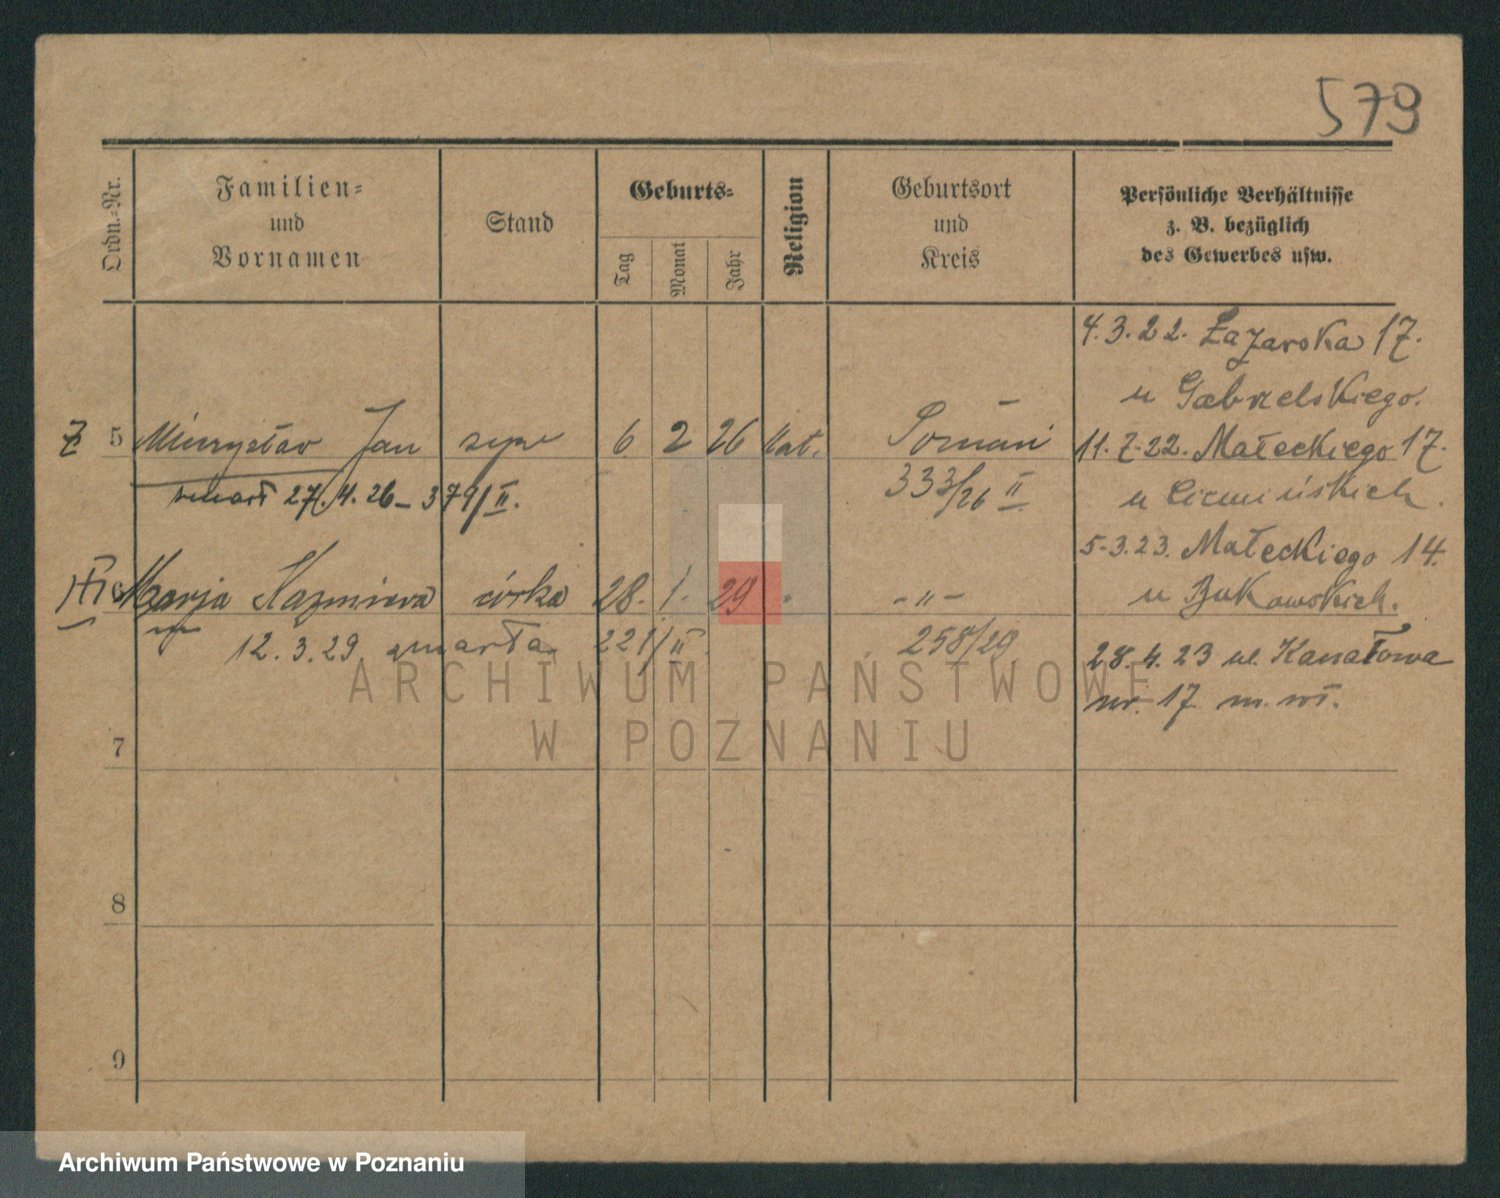 579
Ordn.-Nr.
Familien-
und
Vornamen
Stand
Geburts-
Tag
Monat
Jahr
Religion
Geburtsort
und
Kreis
Persönliche Verhältnisse
z. B. bezüglich
des Gewerbes usw.
4.3.22. Łazarska 17.
u Gabrelskiego.
5 Mieczysław Jan syn 6 2 26 kat. Poznań
11.7.22. Małeckiego 17.
zmarł 27.4.26 – 379/II.
333/26 II
5.3.23. Małeckiego 14.
6 Marja Kazmiera córka 28. 1. 29 - -"-
u Bukowskich.
12.3.29 zmarła 221/II.
258/29
28.4.23 ul. Kanałowa
nr. 17 m. wł.
7
8
9
ARCHIWUM PAŃSTWOWE
W POZNANIU
Archiwum Państwowe w Poznaniu